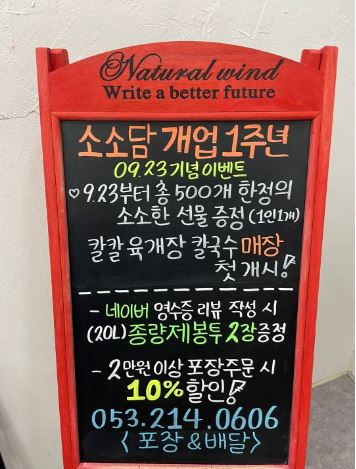 Natural wind
Write a better future
소소담 개업 1주년
09.23 기념 이벤트
♡ 9.23부터 총 500개 한정의
소소한 선물 증정 (1인1개)
칼칼 육개장 칼국수 매장
첫 개시!
- 네이버 영수증 리뷰 작성 시
(20L) 종량제봉투 2장 증정
- 2만원 이상 포장주문 시
10% 할인!
053.214.0606
< 포장 & 배달 >